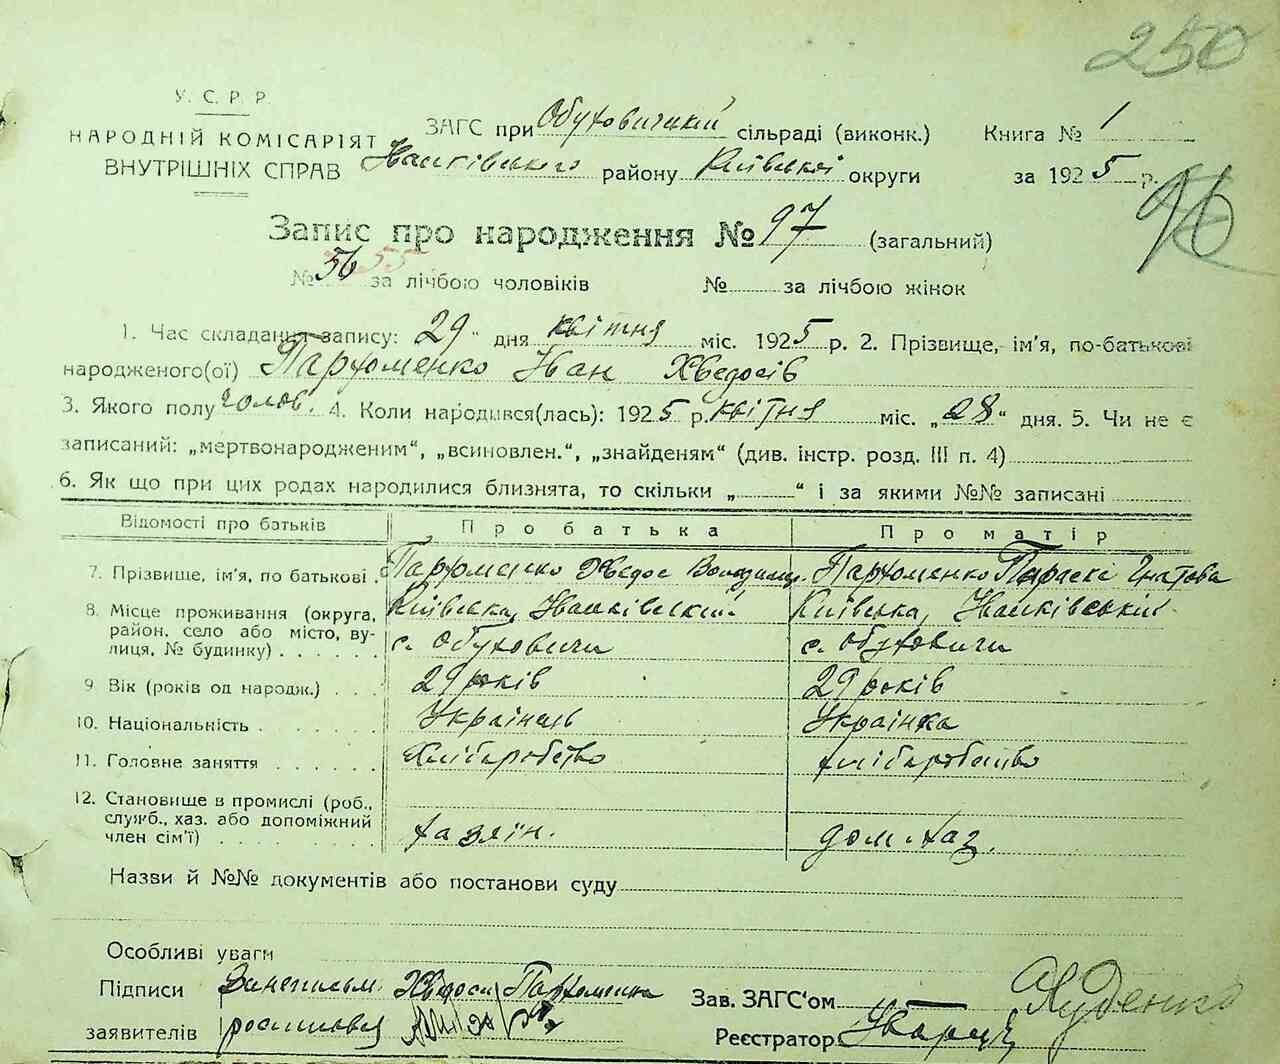 250
У. С. Р. Р.
НАРОДНІЙ КОМІСАРІЯТ
ВНУТРІШНІХ СПРАВ
ЗАГС при Обуховицькій сільраді (виконк.) Книга № 1
Іванківського району Київської округи за 1925 р.
96
Запис про народження № 97 (загальний)
№ 56 55 за лічбою чоловіків № за лічбою жінок
1. Час складання запису: 29 " дня квітня міс. 1925 р. 2. Прізвище, ім'я, по-батькові
народженого(ої) Пархоменко Іван Хведосів
3. Якого полу чолов. 4. Коли народився(лась): 1925 р. квітня міс. „28" дня. 5. Чи не є
записаний: „мертвонародженим", „всиновлен.", „знайденям" (див. інстр. розд. III п. 4)
6. Як що при цих родах народилися близнята, то скільки „ " і за якими №№ записані
Відомості про батьків Про батька Про матір
7. Прізвище, ім'я, по батькові . Пархоменко Хведос Володимир. Пархоменко Параска Гнатова
8. Місце проживання (округа, Київська, Іванківський Київська, Іванківський
район, село або місто, ву-
лиця, № будинку) . . . . . с. Обуховичи с. Обуховичи
9 Вік (років од народж.) . . . 29 років 29 років
10. Національність . . . . . . Українець Українка
11. Головне заняття . . . . . . Хліборобство хліборобство
12. Становище в промислі (роб.,
служб., хаз. або допоміжний
член сім'ї) . . . . . . . . хазяїн. дом. хаз.
Назви й №№ документів або постанови суду
Особливі уваги
Підписи Хведоси Пархоменка Зав. ЗАГС'ом
заявителів росписався Реєстратор